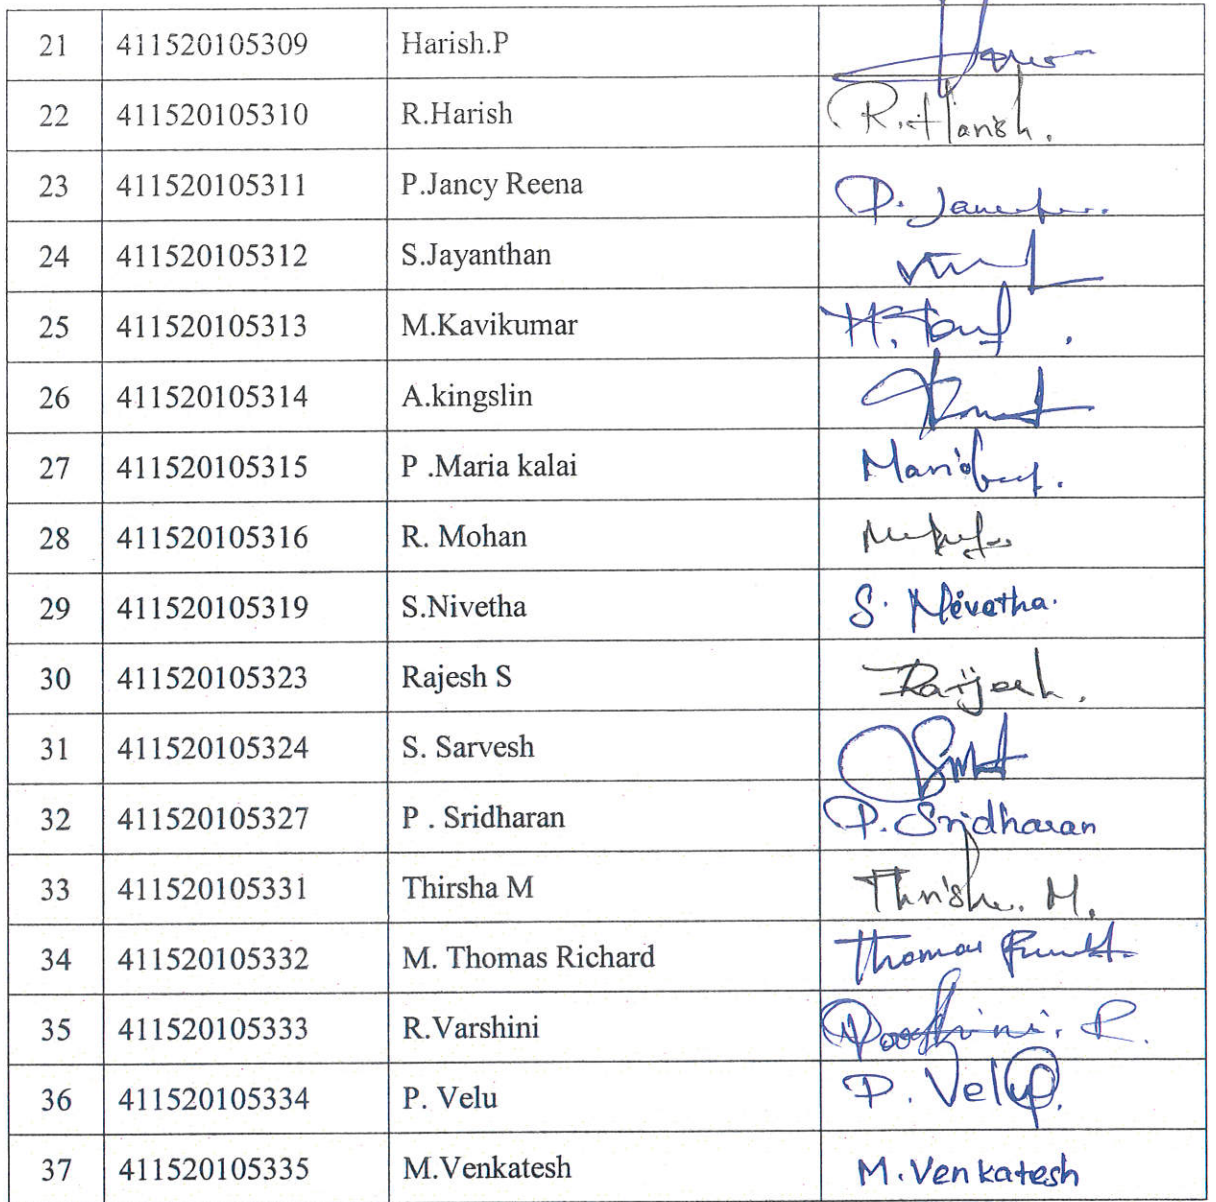 21 411520105309 Harish.P
22 411520105310 R.Harish R.Harish.
23 411520105311 P.Jancy Reena P.
24 411520105312 S.Jayanthan
25 411520105313 M.Kavikumar
26 411520105314 A.kingslin
27 411520105315 P .Maria kalai
28 411520105316 R. Mohan
29 411520105319 S.Nivetha S. Nivetha.
30 411520105323 Rajesh S Rajesh.
31 411520105324 S. Sarvesh
32 411520105327 P . Sridharan P. Sridharan
33 411520105331 Thirsha M Thrisha. M.
34 411520105332 M. Thomas Richard Thomas
35 411520105333 R.Varshini R.
36 411520105334 P. Velu P. Velu
37 411520105335 M.Venkatesh M.Venkatesh